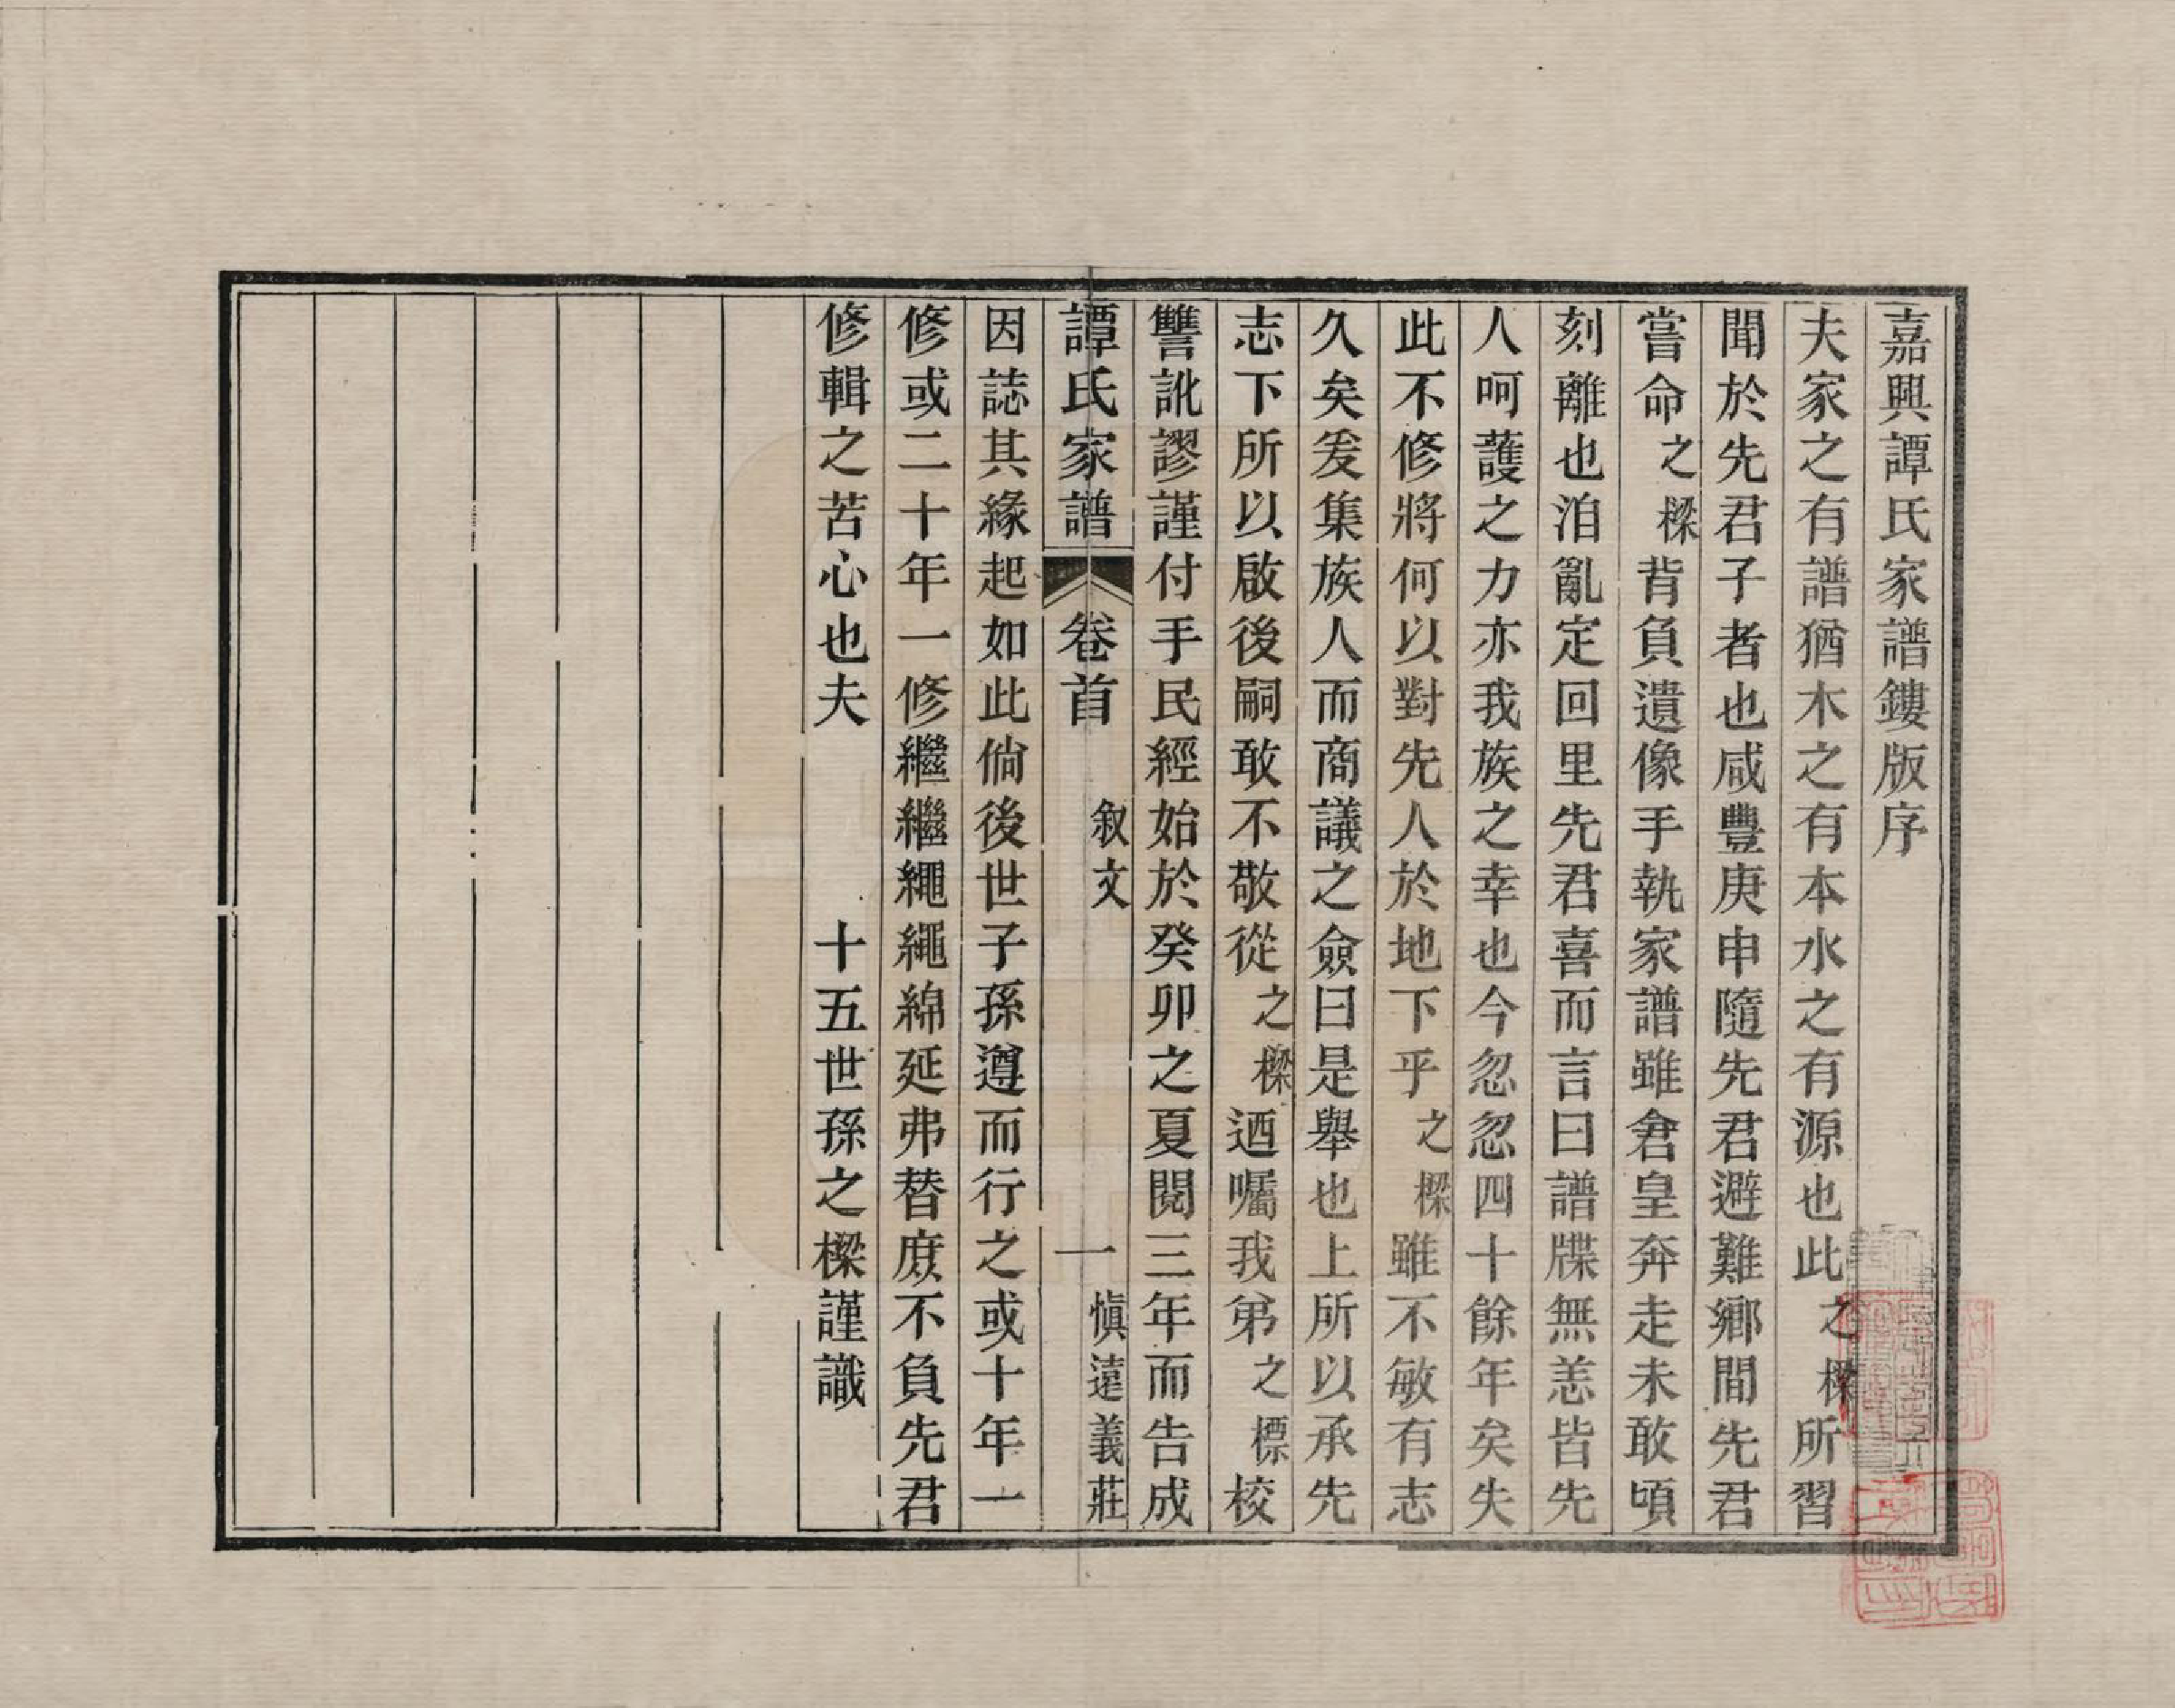 嘉興譚氏家譜鏤版序
夫家之有譜猶木之有本水之有源也此之樑所習
聞於先君子者也咸豐庚申隨先君避難鄉間先君
嘗命之樑背負遺像手執家譜雖倉皇奔走未敢頃
刻離也洎亂定回里先君喜而言曰譜牒無恙皆先
人呵護之力亦我族之幸也今忽忽四十餘年矣失
此不修將何以對先人於地下乎之樑雖不敏有志
久矣爰集族人而商議之僉曰是舉也上所以承先
志下所以啟後嗣敢不敬從之樑迺囑我弟之標校
讐訛謬謹付手民經始於癸卯之夏閱三年而告成
譚氏家譜 卷首 叙文 一 愼遠義莊
因誌其緣起如此倘後世子孫遵而行之或十年一
修或二十年一修繼繼繩繩綿延弗替庶不負先君
修輯之苦心也夫 十五世孫之樑謹識